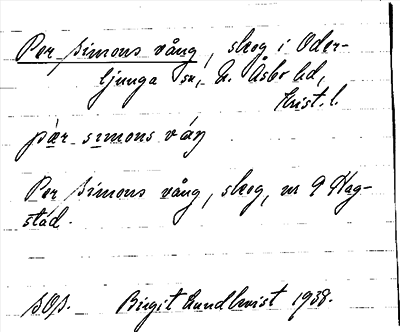 Per Simons vång, skog i Oder-
ljunga sn, N. Åsbo hd,
Krist. l.
pær simons våŋ
Per Simons vång, skog, nr 9 Hag-
stad.
Birgit Lundkvist 1938.